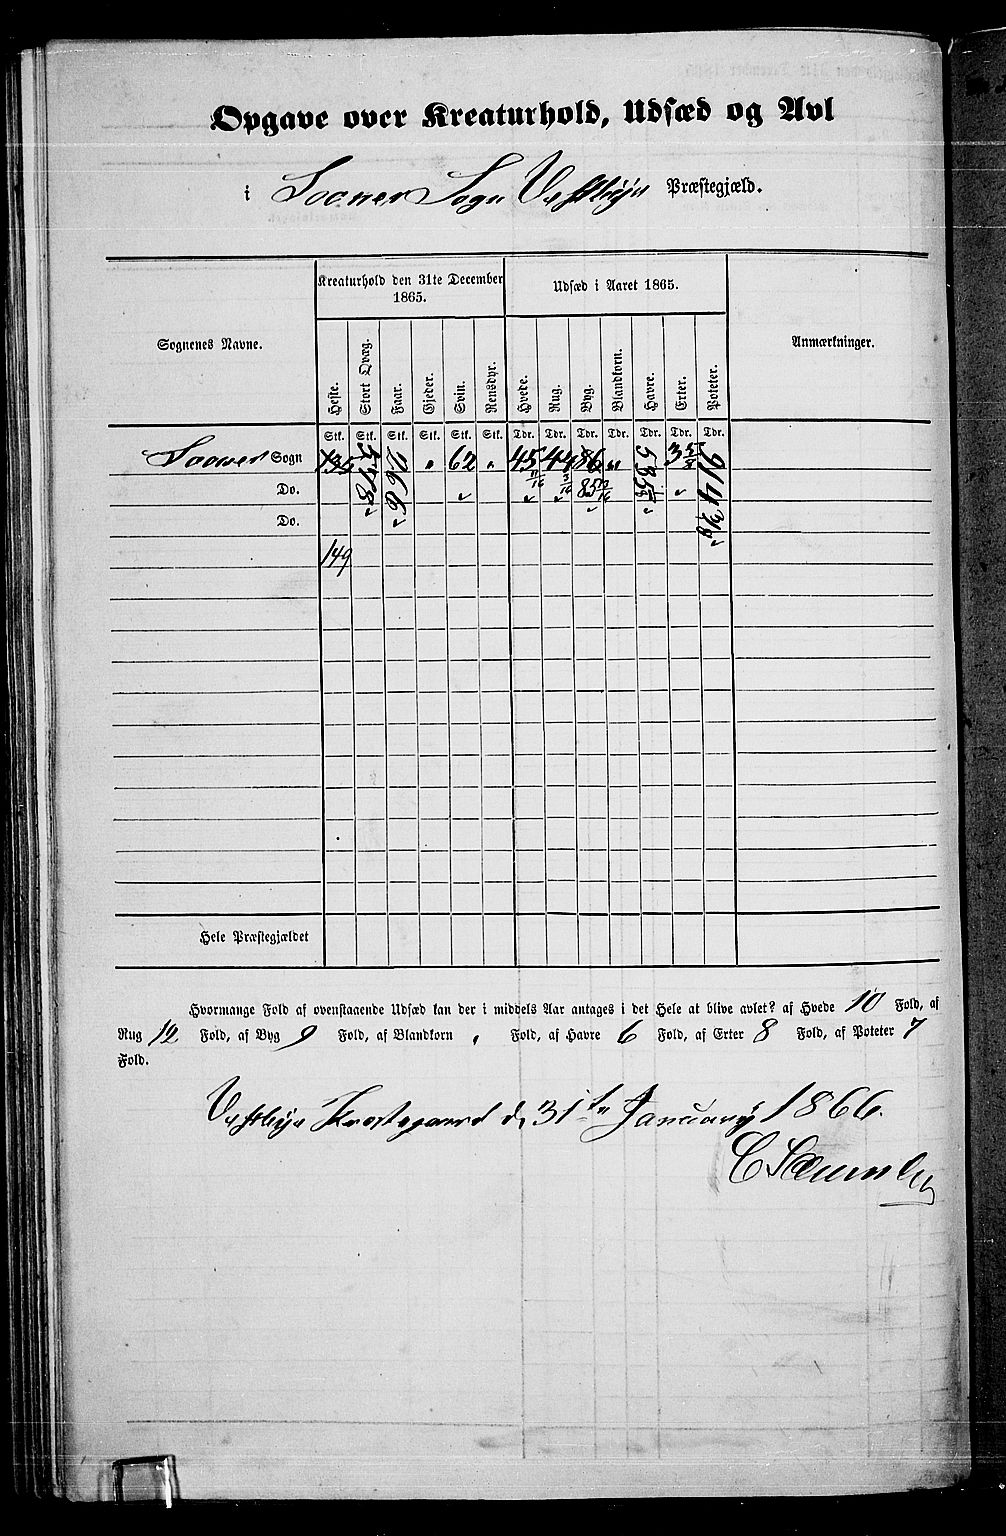 Opgave over Kreaturhold, Udsæd og Avl
i Sooner Sogn Vestby Præstegjæld.
Kreaturhold den 31te December 1865. Udsæd i Aaret 1865.
Sognenes Navne. Heste. Stort Qvæg. Faar. Gjeder. Svin. Rensdyr. Hvede. Rug. Byg. Blandkorn. Havre. Erter. Poteter. Anmærkninger.
Stk. Stk. Stk. Stk. Stk. Stk. Tdr. Tdr. Tdr. Tdr. Tdr. Tdr. Tdr.
Sooner Sogn 135 578 266 " 62 " 45 11/16 44 5/16 86 " 535 3 5/8 914
Do. 85 13/16
Do.
149
Hele Præstegjældet
Hvormange Fold af ovenstaaende Udsæd kan der i middels Aar antages i det Hele at blive avlet? af Hvede 10 Fold, af
Rug 12 Fold, af Byg 9 Fold, af Blandkorn " Fold, af Havre 6 Fold, af Erter 8 Fold, af Poteter 7
Fold.
Vestby Præstegaard d. 31te January 1866.